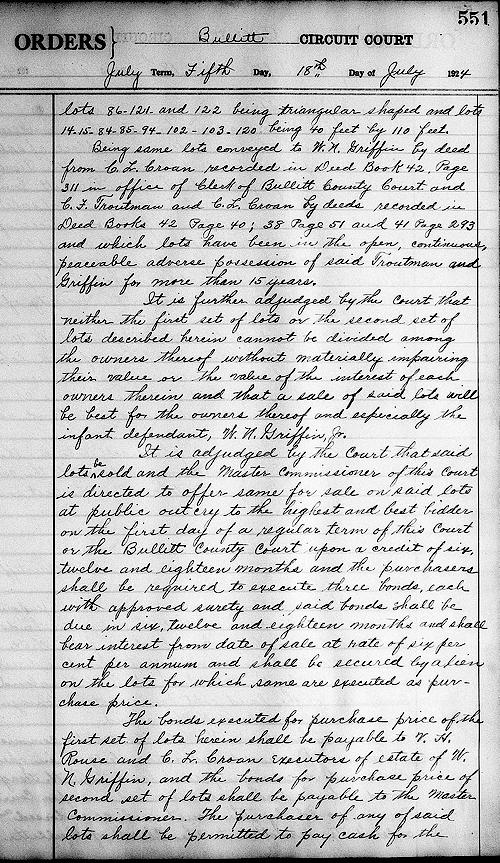 551
ORDERS} Bullitt CIRCUIT COURT
July Term, Fifth Day, 18th Day of July 1924
lots 86-121 and 122 being triangular shaped and lots
14-15-84-85-94-102-103-120 being 40 feet by 110 feet.
Being same lots conveyed to W. N. Griffin by deed
from C. L. Croan recorded in Deed Book 42, Page
311 in office of Clerk of Bullitt County Court and
C. F. Troutman and C. L. Croan by deeds recorded in
Deed Books 42 Page 40; 38 Page 51 and 41 Page 293
and which lots have been in the open, continuous,
peaceable adverse possession of said Troutman and
Griffin for more than 15 years.
It is further adjudged by the Court that
neither the first set of lots or the second set of
lots described herein cannot be divided among
the owners thereof without materially impairing
their value or the value of the interest of each
owners therein and that a sale of said lots will
be best for the owners thereof and especially the
infant defendant, W. N. Griffin, Jr.
It is adjudged by the Court that said
lots be sold and the Master Commissioner of this Court
is directed to offer same for sale on said lots
at public out cry to the highest and best bidder
on the first day of a regular term of this Court
or the Bullitt County Court upon a credit of six,
twelve and eighteen months and the purchasers
shall be required to execute three bonds, each
with approved surety and said bonds shall be
due in six, twelve and eighteen months and shall
bear interest from date of sale at rate of six per
cent per annum and shall be secured by a lien
on the lots for which same are executed as pur-
chase price.
The bonds executed for purchase price of the
first set of lots herein shall be payable to V. H.
Rouse and C. L. Croan executors of estate of W.
N. Griffin, and the bonds for purchase price of
second set of lots shall be payable to the Master
Commissioner. The purchaser of any of said
lots shall be permitted to pay cash for the